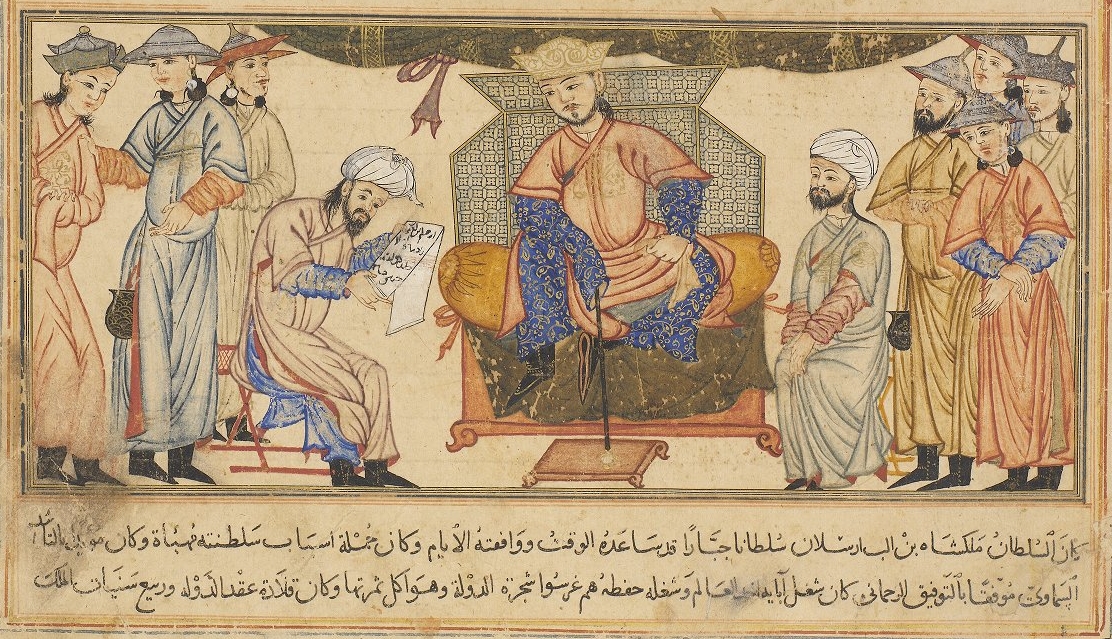 كان السلطان ملكشاه بن الب ارسلان سلطانا جبارا قد ساعده الوقت ووافقته الايام وكان جملة اسباب سلطنته مهيأة وكان
السماوي موفقا بالتوفيق الرحماني كان شغل آبايه العالم وشغله حفظه هم غرسوا شجرة الدولة وهو اكل ثمرتها وكان قلادة عقد الدولة وربيع